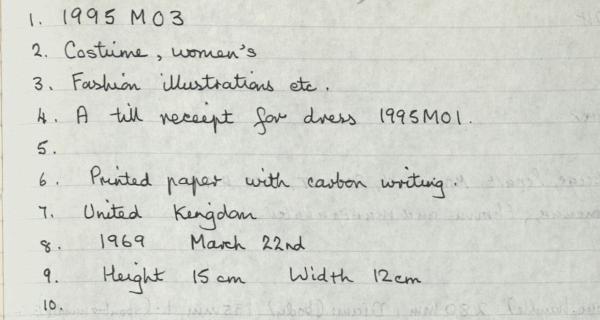 1. 1995 M03
2. Costume, women's
3. Fashion illustrations etc.
4. A till receipt for dress 1995M01.
5.
6. Printed paper with carbon writing.
7. United Kengdom
8. 1969 March 22nd
9. Height 15cm Width 12cm
10.